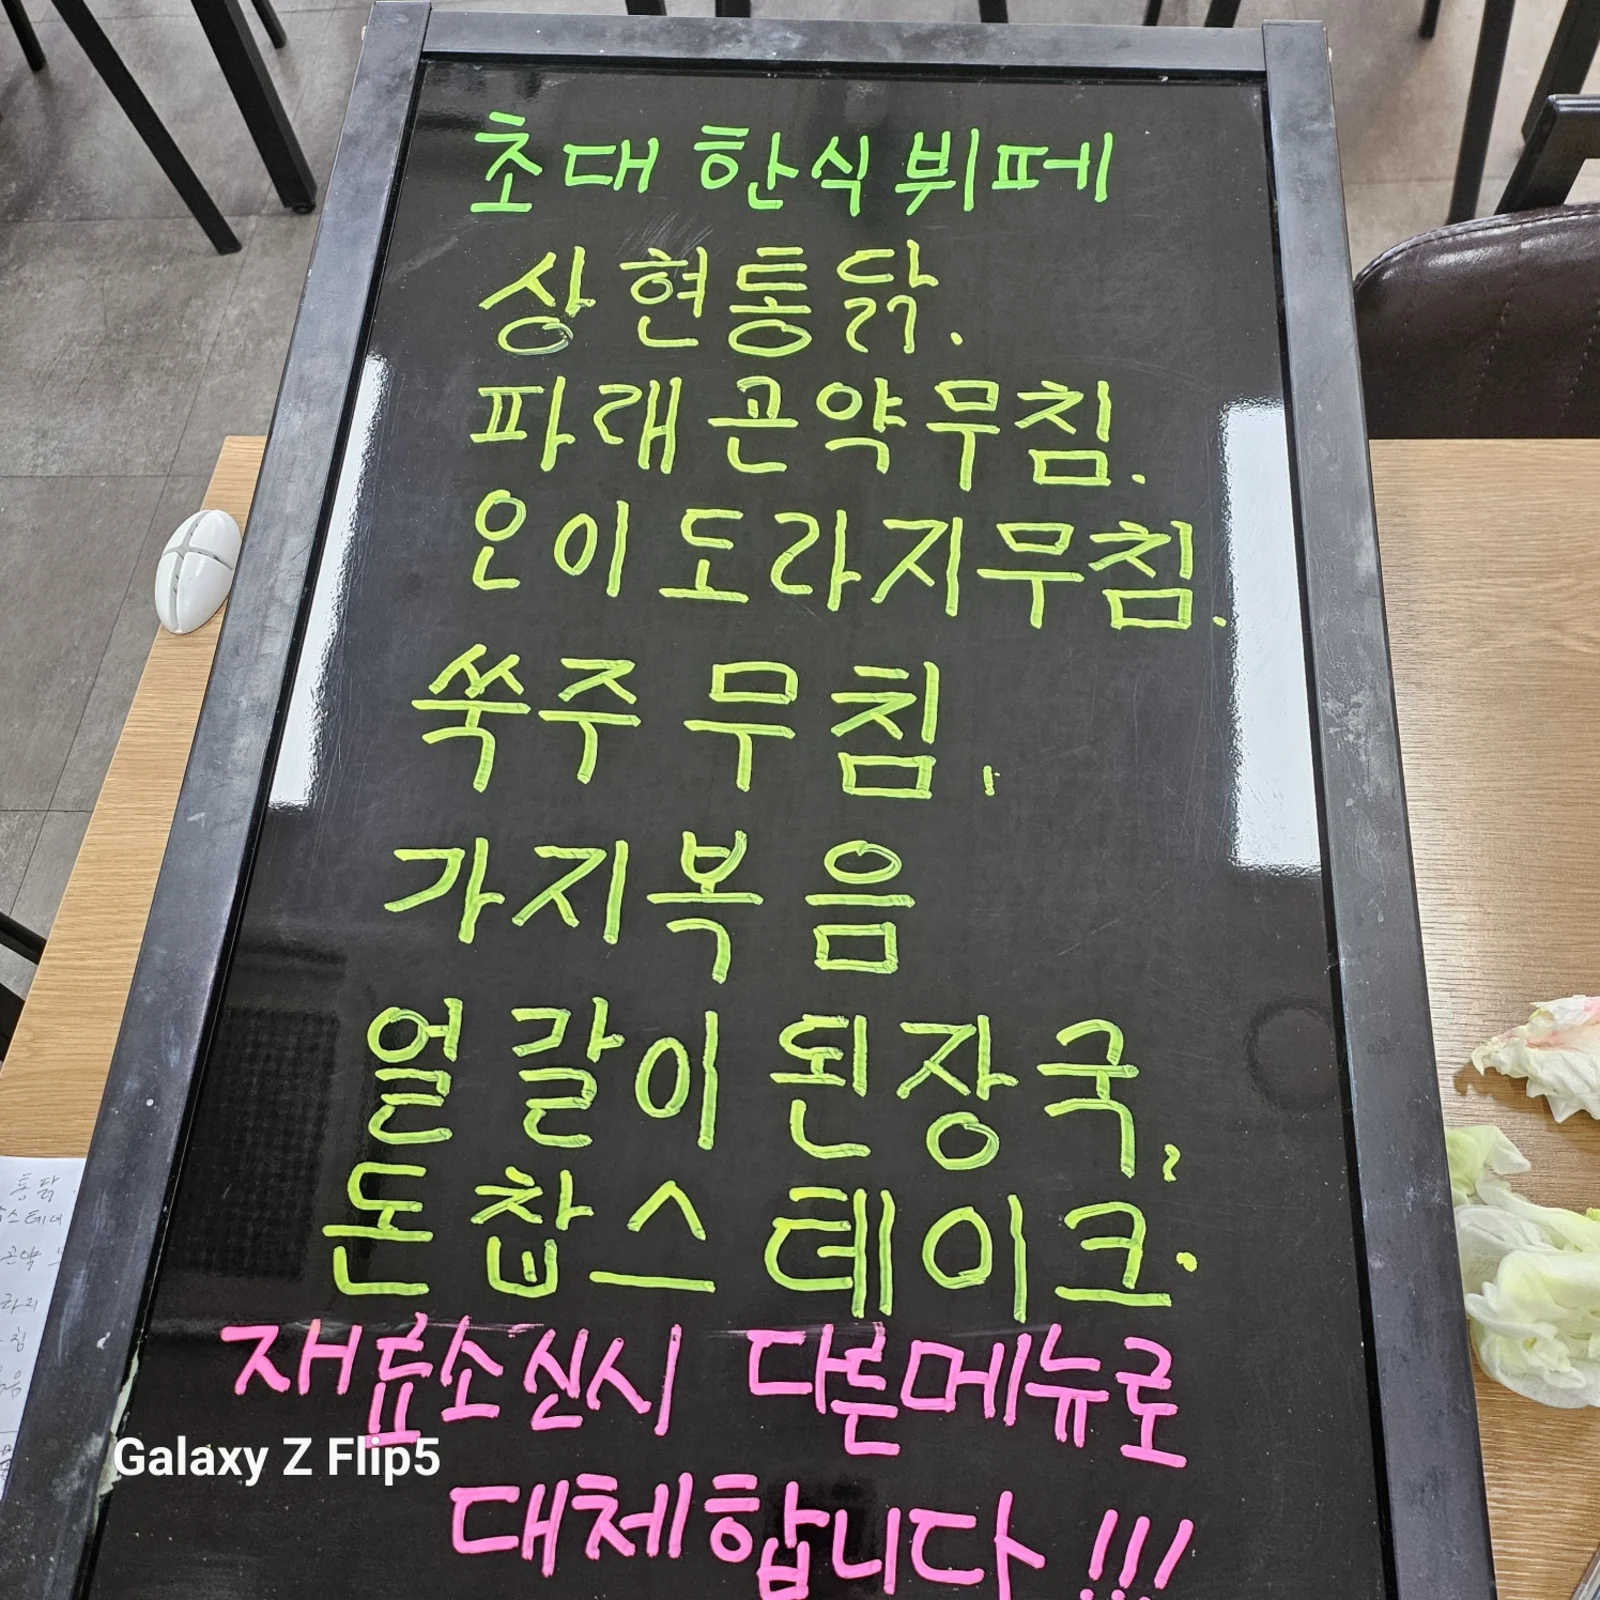 초대 한식 뷔페
상현통닭.
파래곤약무침.
오이도라지무침.
쑥주 무침.
가지복음
얼갈이 된장국,
돈찹스테이크.
재료소신시 다른메뉴로
대체합니다 !!!
Galaxy Z Flip5
통닭
스테이
곤약
라지
침
음